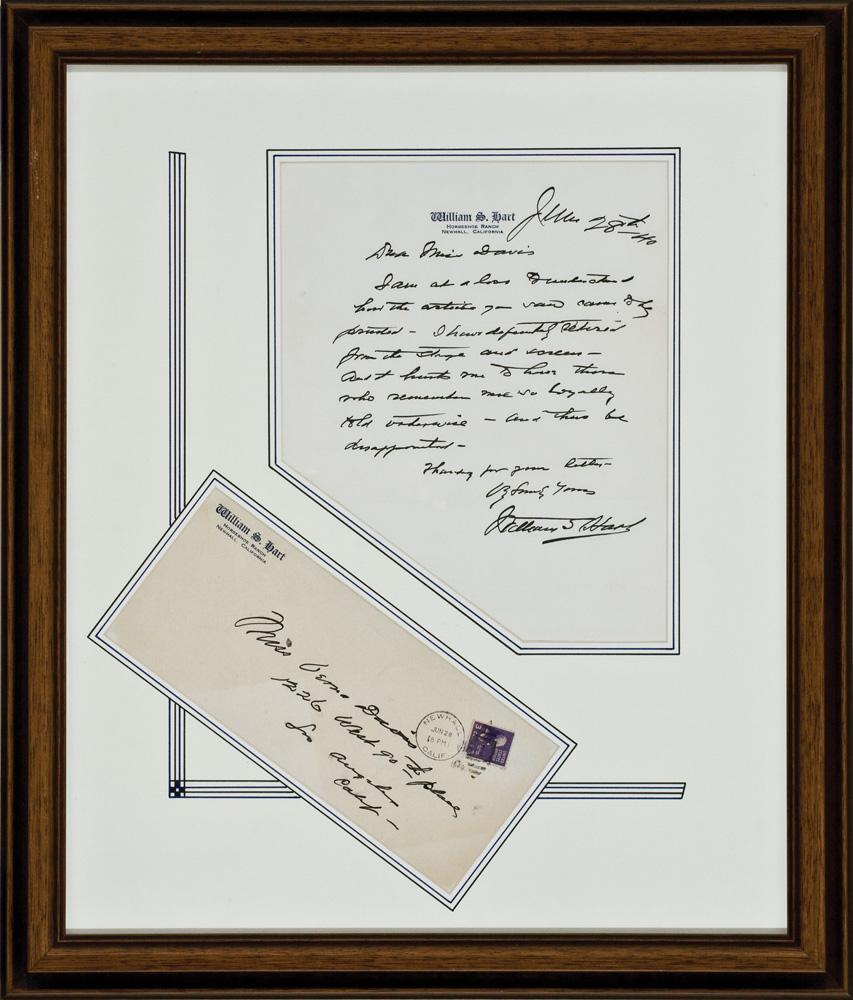 William S. Hart
HORSESHOE RANCH
NEWHALL, CALIFORNIA
June 28th
-40
Dear Miss Davis
I am at a loss to understand
how the article you saw came to be
printed - I have definitely retired
from the stage and screen -
and it hurts me to have those
who remember me so loyally
told otherwise - and thus be
disappointed -
Thanking for your letter -
Yours
William S. Hart
William S. Hart
HORSESHOE RANCH
NEWHALL, CALIFORNIA
Miss Davis
1226 West 90th place,
Los Angeles
Calif -
NEWHALL
JUN 28
6 PM
CALIF.
3¢